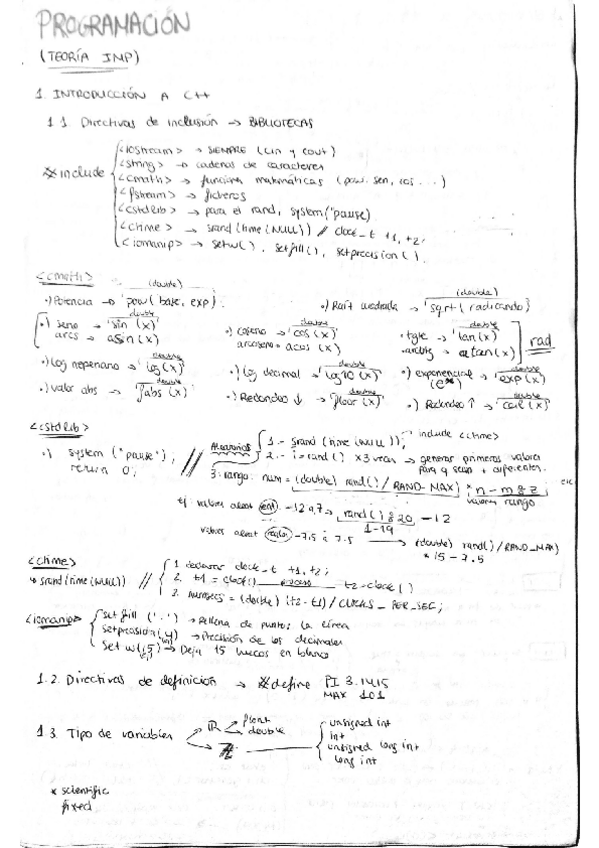 PROGRAMACIÓN
(TEORÍA IMP)
1. INTRODUCCIÓN A C++
1.1. Directivas de inclusión → BIBLIOTECAS
#include
<iostream> → SIEMPRE (cin y cout)
<string> → cadenas de caracteres
<cmath> → funciones matemáticas (pow, sen, cos ...)
<fstream> → ficheros
<cstdlib> → para el rand, system("pause)
<ctime> → srand(time(NULL)) // clock_t t1, t2;
<iomanip> → setw(), setfill(), setprecision().
<cmath>
(double) (double)
·) Potencia → pow(base, exp). ·) Raíz cuadrada → sqrt(radicando)
double double double
·) seno → sin(x) ·) coseno → cos(x) · tgte → tan(x)
arcs → asin(x) arcoseno = acos(x) · arctg → atan(x) rad
double double double
·) log neperiano → log(x) ·) log decimal → log10(x) ·) exponencial (e^x) → exp(x)
double double double
·) valor abs → fabs(x) ·) Redondeo ↓ → floor(x) ·) Redondeo ↑ → ceil(x)
<cstdlib>
·) system("pause"); // Aleatorios
return 0;
1.- srand(time(NULL)); include <ctime>
2.- i = rand() x3 veces → generar primeros valores
para q sean + diferentes.
3. rango: num = (double) rand() / RAND-MAX)
valores rango
ej: valores aleat ent -12 a 7 → rand() % 20 - 12
1-19
valores aleat reales -7.5 a 7.5 → (double) rand() / RAND_MAX)
* 15 - 7.5
<ctime>
↳ srand(time(NULL)) //
1. declarar clock_t t1, t2;
2. t1 = clock() proceso t2 = clock()
3. numsecs = (double) (t2-t1) / CLOCKS_PER_SEC;
<iomanip>
setfill('.') → Rellena de puntos la línea
setprecision(4) → Precisión de los decimales
setw(15) → Deja 15 huecos en blanco
1.2. Directivas de definición → #define PI 3.1415
MAX 101
1.3. Tipo de variables
ℝ → float
double
ℤ
unsigned int
int
unsigned long int
long int
* scientific
fixed